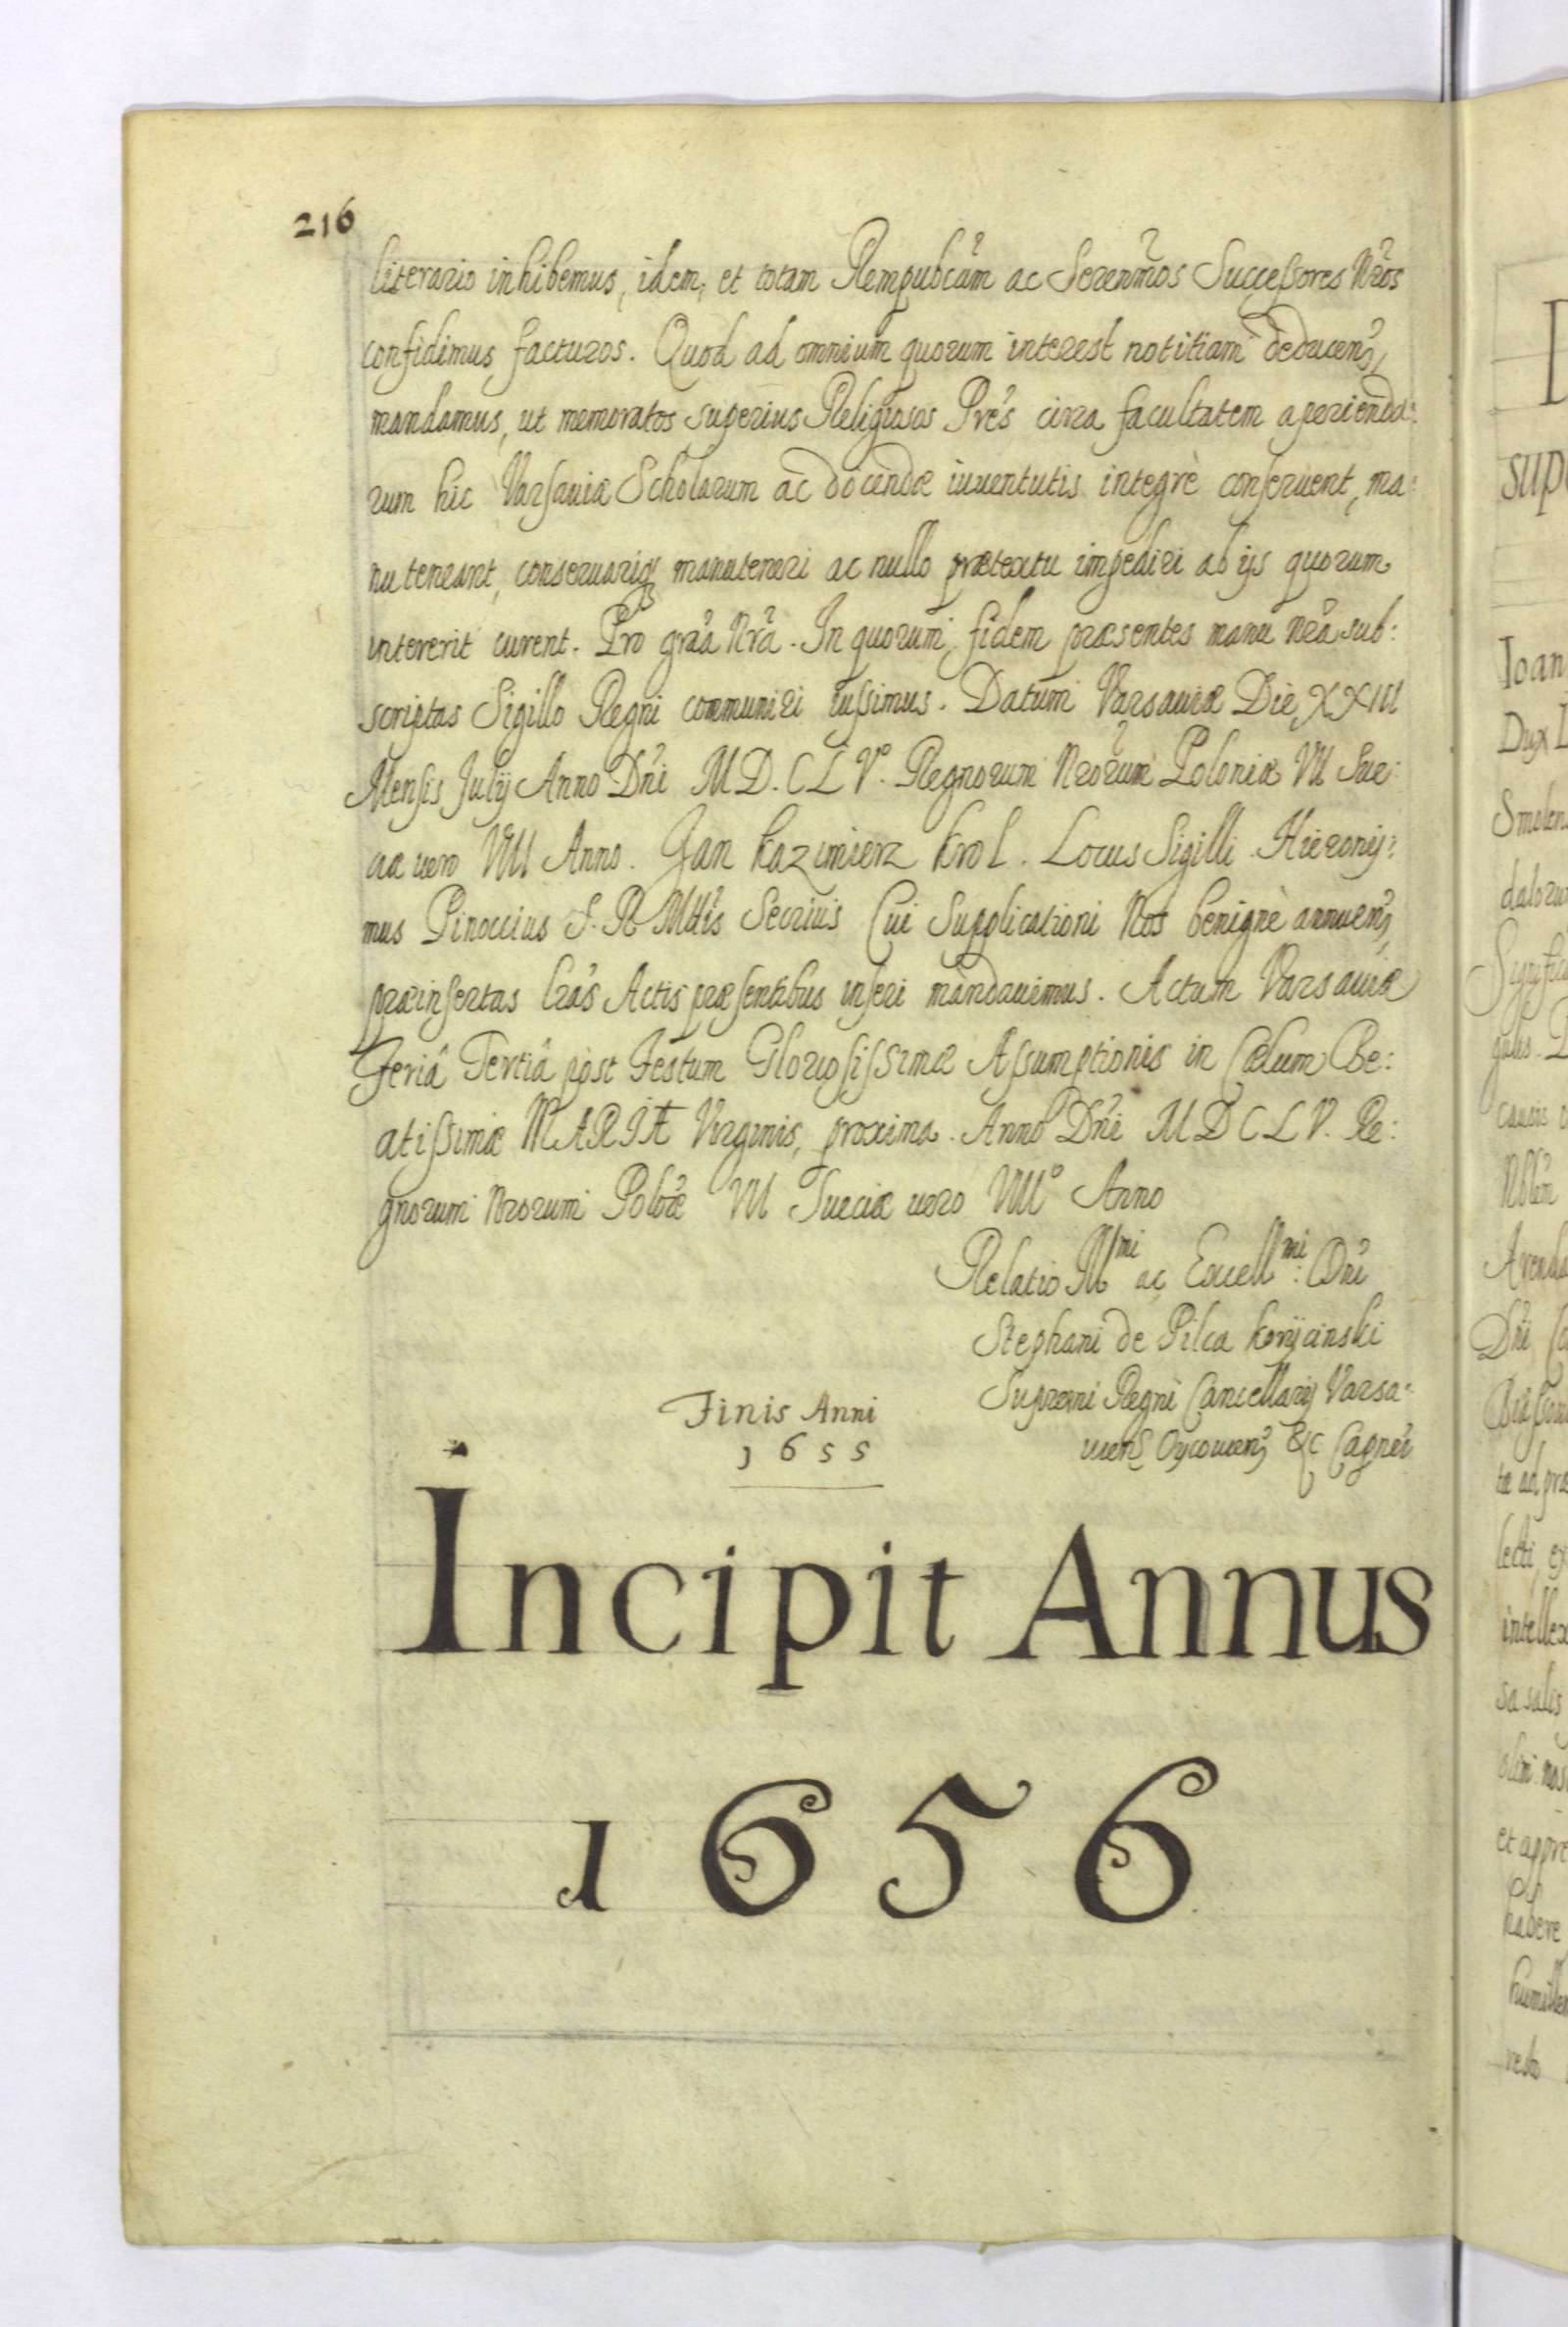 216
literario inhibemus, idem, et totam Rempubcãm ac Serenm̃os Successores Nr̃os
confidimus facturos. Quod ad omnium quorum interest notitiam deducen̄,
mandamus, ut memoratos superius Religiosos Pr̃es circa facultatem aperienda:
rum hic Varsaviæ Scholarum ac docendæ iuventutis integrè conservent, ma:
nuteneant, conservariq; manuteneri ac nullo prætextu impediri ab ijs quorum
intererit curent. Pro gr̃a Nr̃a. In quorum fidem præsentes manu nr̃a sub:
scriptas Sigillo Regni communiri iussimus. Datum Varsaviæ Die XXIII
Mensis Julij Anno Dñi M D. C L Vº. Regnorum Nrõrum Poloniæ VII Sue:
ciæ vero VIII Anno. Jan Kazimierz Krol. Locus Sigilli. Hieronÿ:
mus Pinoccius S. R. Mttis Secrius Cui Supplicationi Nos benignè annuen̄,
præinsertas lr̃as Actis præsentibus inseri mandavimus. Actum Varsaviæ
Feriâ Tertiâ post Festum Gloriosissimæ Assumptionis in Cælum Be:
atissimæ MARIÆ Virginis, proxima. Anno Dñi M D C L V. Re:
gnorum Nrorum Polõæ VII Sueciæ vero VIIIº Anno
Relatio Ill^mi ac Excell^mi: Dñi
Stephani de Pilca Korÿcinski
Supremi Regni Cancellarij Varsa:
vien̄ Oycovien̄ &c Capnei
Finis Anni
1655
Incipit Annus
1656
supe
Ioan
Dux L
Smolen
daloru
Significa
gulis.
causis
Nblem
Dñi
lecti, ex
intellex
sa salis
et appre
habere